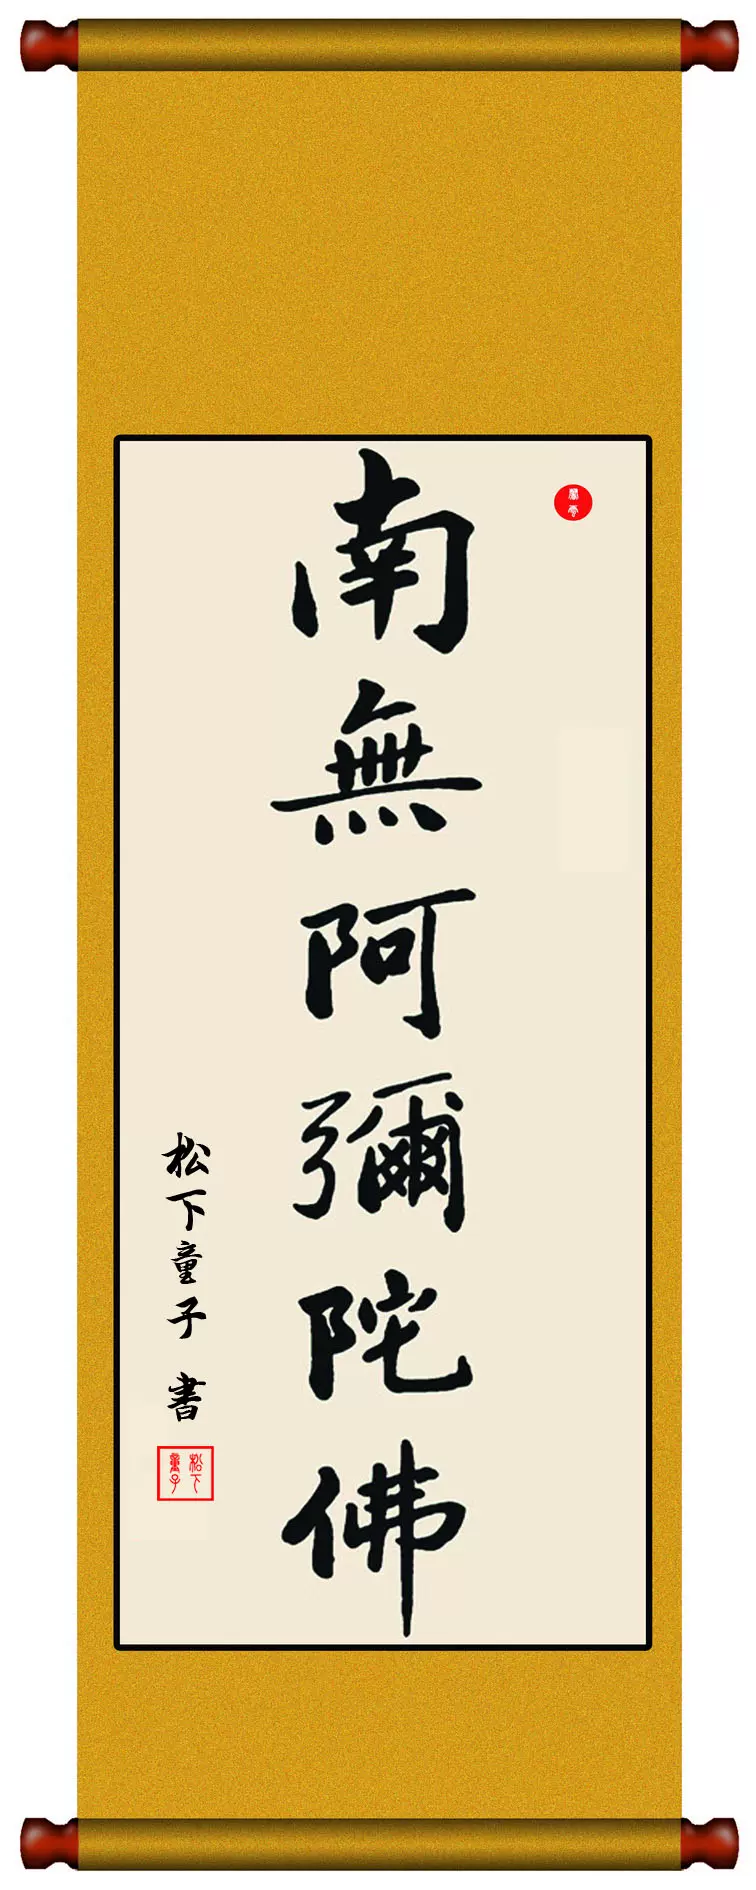 南無阿彌陀佛
松下童子 書
松下
童子